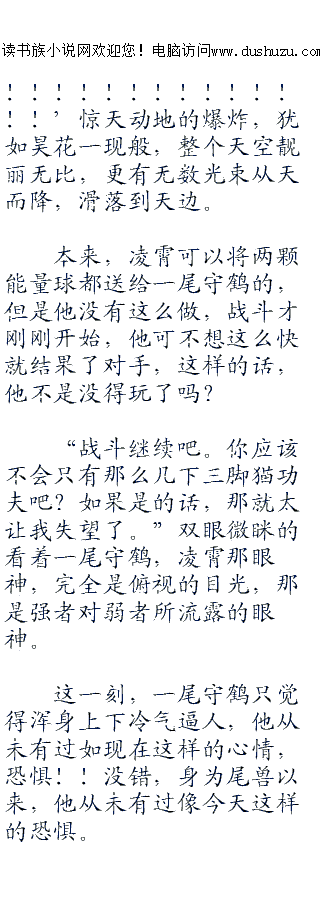 读书族小说网欢迎您！电脑访问www.dushuzu.com
！！！！！！！！！！！！
！！’惊天动地的爆炸，犹
如昊花一现般，整个天空靓
丽无比，更有无数光束从天
而降，滑落到天边。
本来，凌霄可以将两颗
能量球都送给一尾守鹤的，
但是他没有这么做，战斗才
刚刚开始，他可不想这么快
就结果了对手，这样的话，
他不是没得玩了吗？
“战斗继续吧。你应该
不会只有那么几下三脚猫功
夫吧？如果是的话，那就太
让我失望了。”双眼微眯的
看着一尾守鹤，凌霄那眼
神，完全是俯视的目光，那
是强者对弱者所流露的眼
神。
这一刻，一尾守鹤只觉
得浑身上下冷气逼人，他从
未有过如现在这样的心情，
恐惧！！没错，身为尾兽以
来，他从未有过像今天这样
的恐惧。